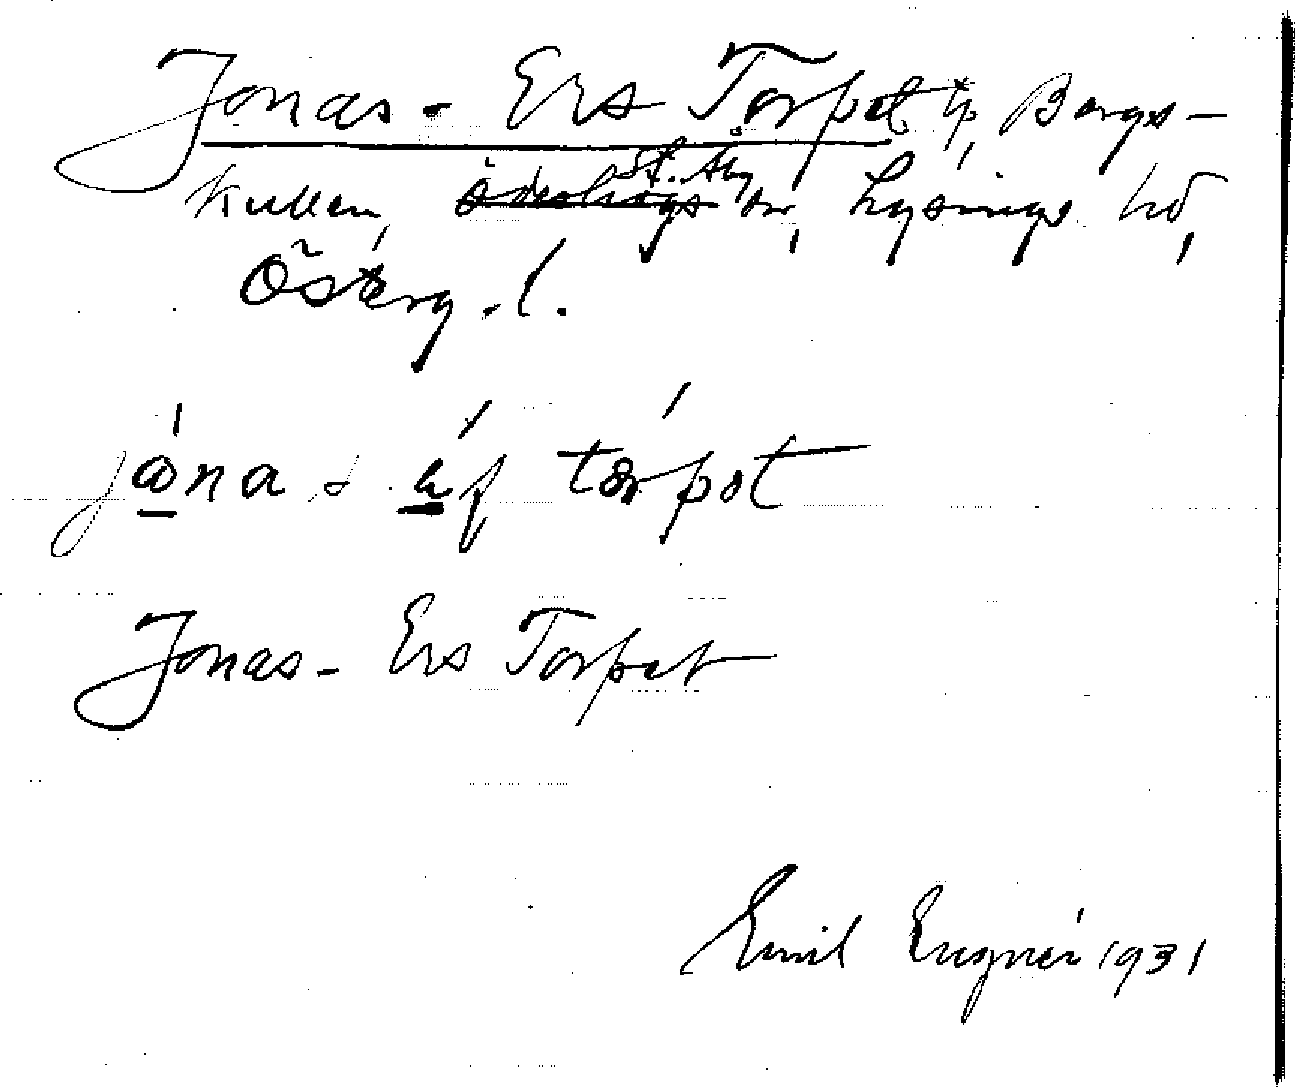 Jonas-Ers Torpet tp, Bergs-
kullen, St. Åby sn, Lysings hd,
Österg.l.
jona s af torpot
Jonas-Ers Torpet
Emil Engnér 1931